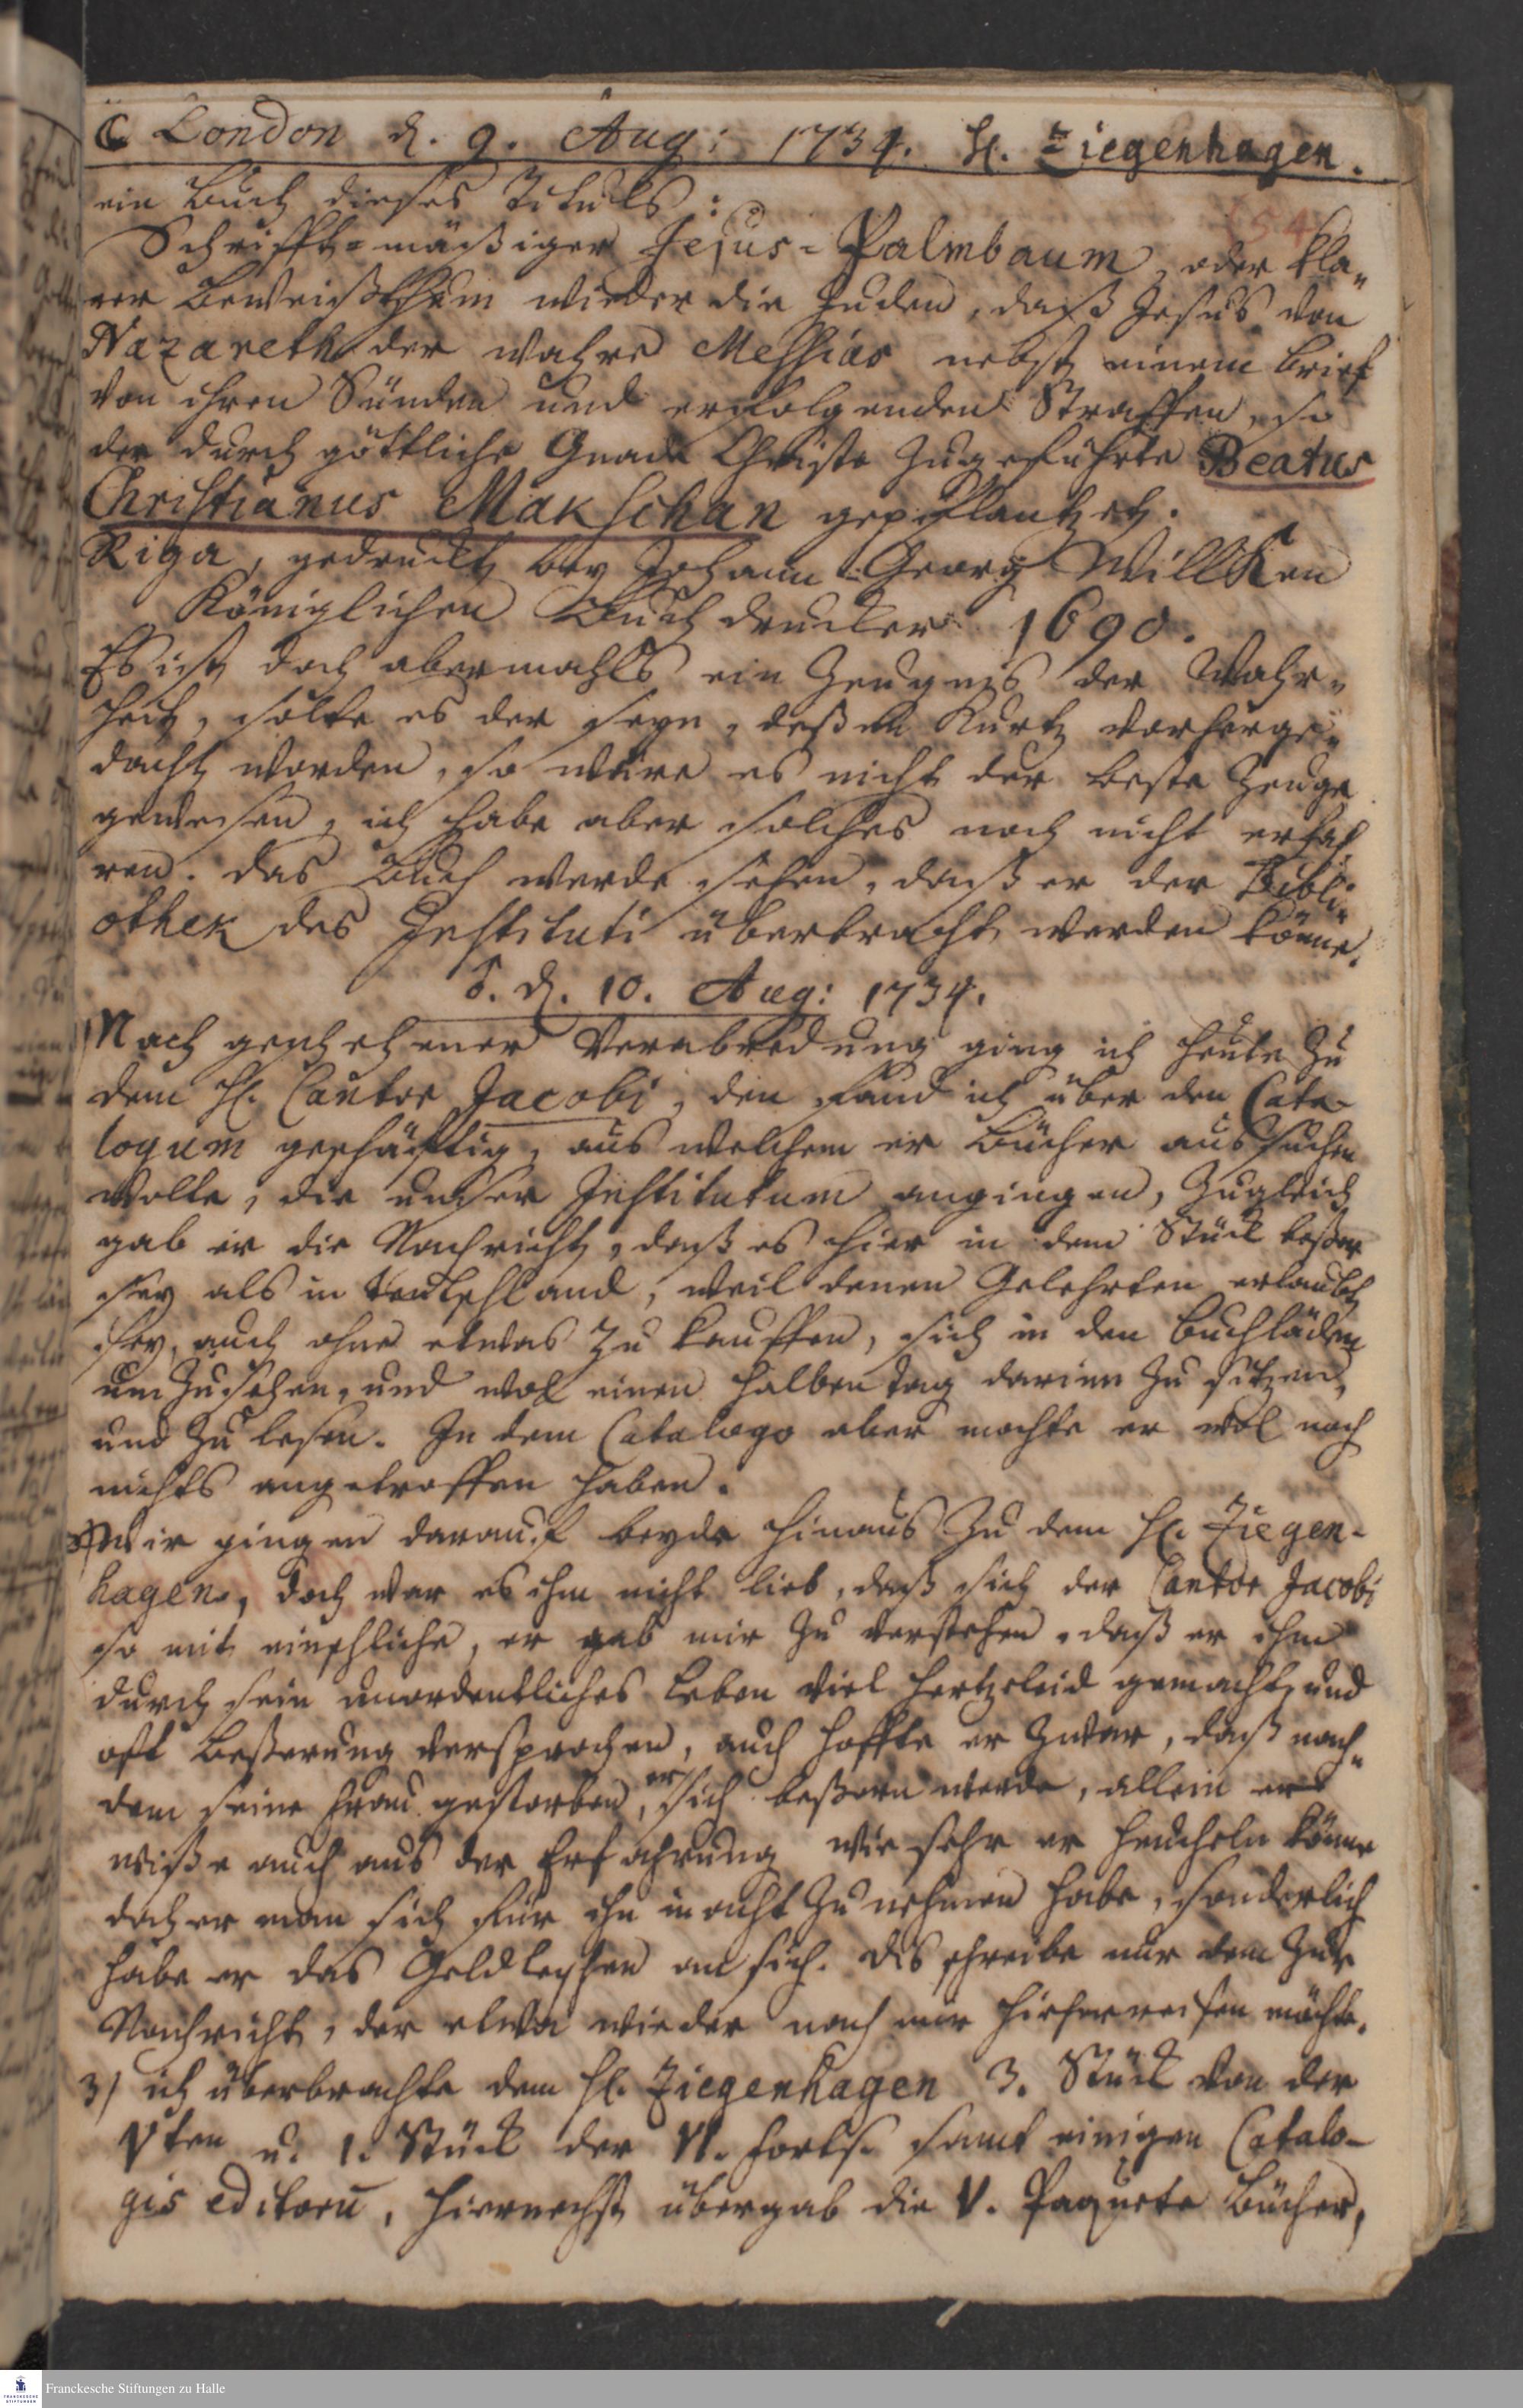 ☾ London d. 9. Aug: 1734. H. Ziegenhagen.
ein Buch dieses Tituls:
Schrifft-mäßiger Jesus-Palmbaum, oder kla-
rer Beweißthum wieder die Juden, daß Jesus von
Nazareth der wahre Messias nebst einem brief
von ihren Sünden und erfolgenden Straffen, so
der durch göttliche Gnade Christo zugeführte Beatus
Christianus Makschan gepflantzet.
Riga, gedruckt bey Johann Georg Willken
Königlichen Buchdrucker 1690.
Es ist doch abermahls ein Zeugnis der Wahr-
heit, solte es der seyn, deßen kurtz vorherge-
dacht worden, so wäre es nicht der beste Zeuge
gewesen, ich habe aber solches noch nicht erfah
ren. das Buch werde sehen, daß er der Bibli-
othek des Instituti überbracht werden könne.
d. 10. Aug: 1734.
Nach geschehener Verabredung ging ich heute zu
dem H. Cantor Jacobi, den fand ich über den Cata-
logum geschäfftig, aus welchem er Bücher aussuchen
wolte, die unser Institutum angingen, zugleich
gab er die Nachricht, daß es hier in dem Stück beßer
sey als in Teutschland, weil denen Gelehrten erlaubt
sey, auch ohne etwas zu kauffen, sich in den buchläden
umzusehen, und wol einen halben tag darinn zu sitzen,
und zu lesen. In dem Catalogo aber mochte er wol noch
nichts angetroffen haben.
2) Wir gingen darauf beyde hinaus zu dem H. Ziegen-
hagen, doch war es ihm nicht lieb, daß sich der Cantor Jacobi
so mit einschliche, er gab mir zu verstehen, daß er ihm
durch sein unordentliches leben viel hertzeleid gemacht, und
oft beßerung versprochen, auch hoffte er zwar, daß nach-
dem seine frau gestorben, er sich beßern werde, allein er
wiße auch aus der Erfahrung wie sehr er heucheln könne
daher man sich für ihn in acht zu nehmen habe, sonderlich
habe er das Geldleyhen an sich. dis schreibe nur dem zur
Nachricht, der etwa wieder nach mir hieherreisen möchte.
3) ich überbrachte dem H. Ziegenhagen 3. Stück von der
Vten u. 1. Stück der VI. forts. samt einigen Catalo-
gis editorū, hiernechst übergab die V. Paquete bücher,
Franckesche Stiftungen zu Halle